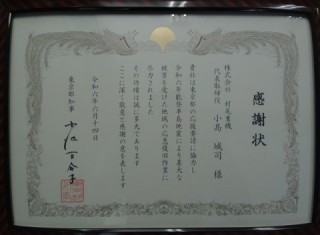 感謝状
株式会社 村尾重機
代表取締役 小髙 城司 様
貴社は東京都の応援事請に協力し
令和六年能登半島地震により甚大な
被害を受けた地域の応急復旧作業に
尽力されました
その功績は誠に多大であります
ここに深く敬意と感謝の意を表します
令和六年六月十四日
東京都知事 小池百合子